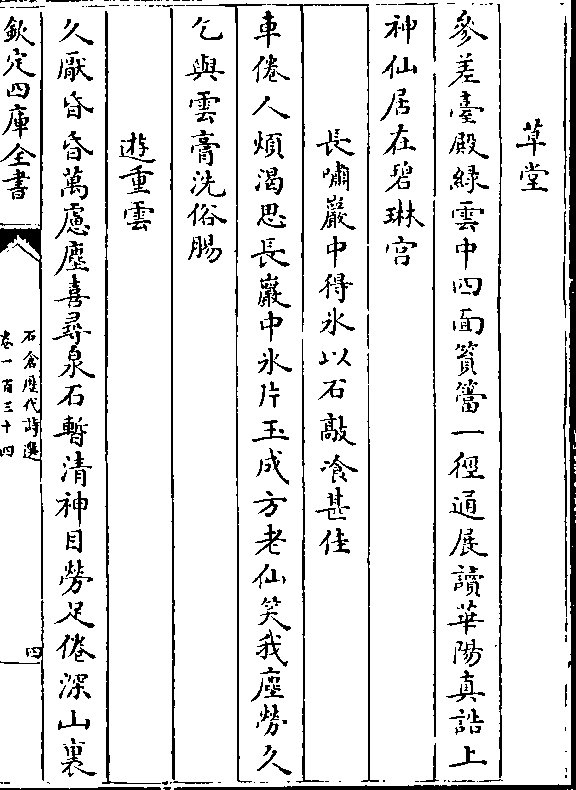 草堂
參差臺殿綠雲中四面篔簹一徑通展讀華陽真誥上
神仙居在碧琳宫
長嘯巖中得氷以石敲飡甚佳
車倦人煩渴思長巖中氷片玉成方老仙笑我塵勞久
乞與雲膏洗俗腸
遊重雲
久厭昏昏萬慮塵喜尋泉石暫清神目勞足倦深山裏
欽定四庫全書
石倉歷代詩選
卷一百三十四
四